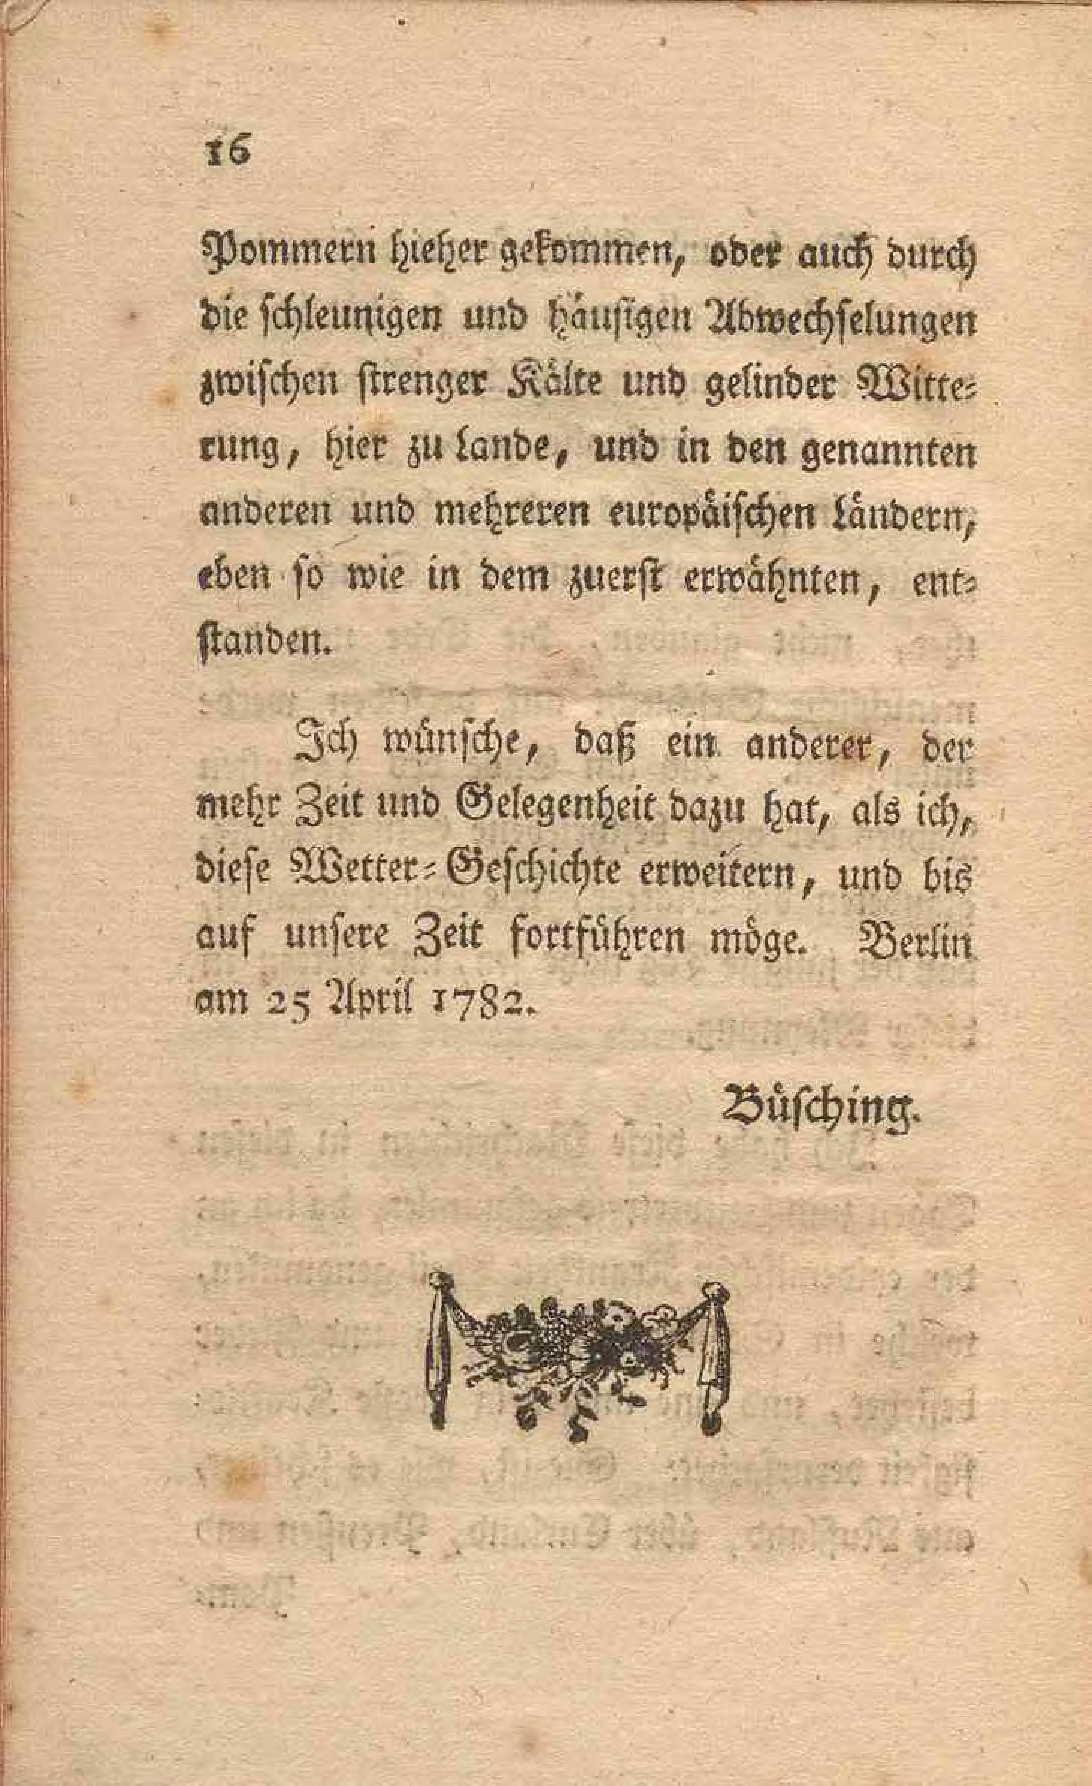 16
Pommern hieher gekommen, oder auch durch
die schleunigen und häufigen Abwechselungen
zwischen strenger Kälte und gelinder Witte-
rung, hier zu Lande, und in den genannten
anderen und mehreren europäischen Ländern,
eben so wie in dem zuerst erwähnten, ent-
standen.
Ich wünsche, daß ein anderer, der
mehr Zeit und Gelegenheit dazu hat, als ich,
diese Wetter-Geschichte erweitern, und bis
auf unsere Zeit fortführen möge. Berlin
am 25 April 1782.
Büsching.